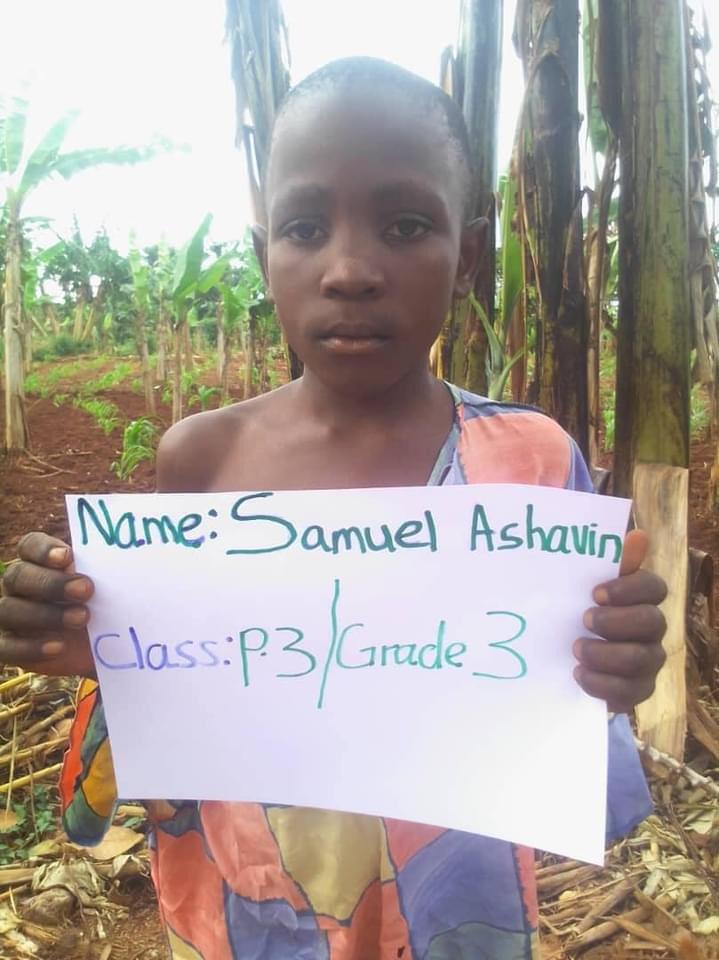 Name: Samuel Ashavin
Class: P.3/Grade 3